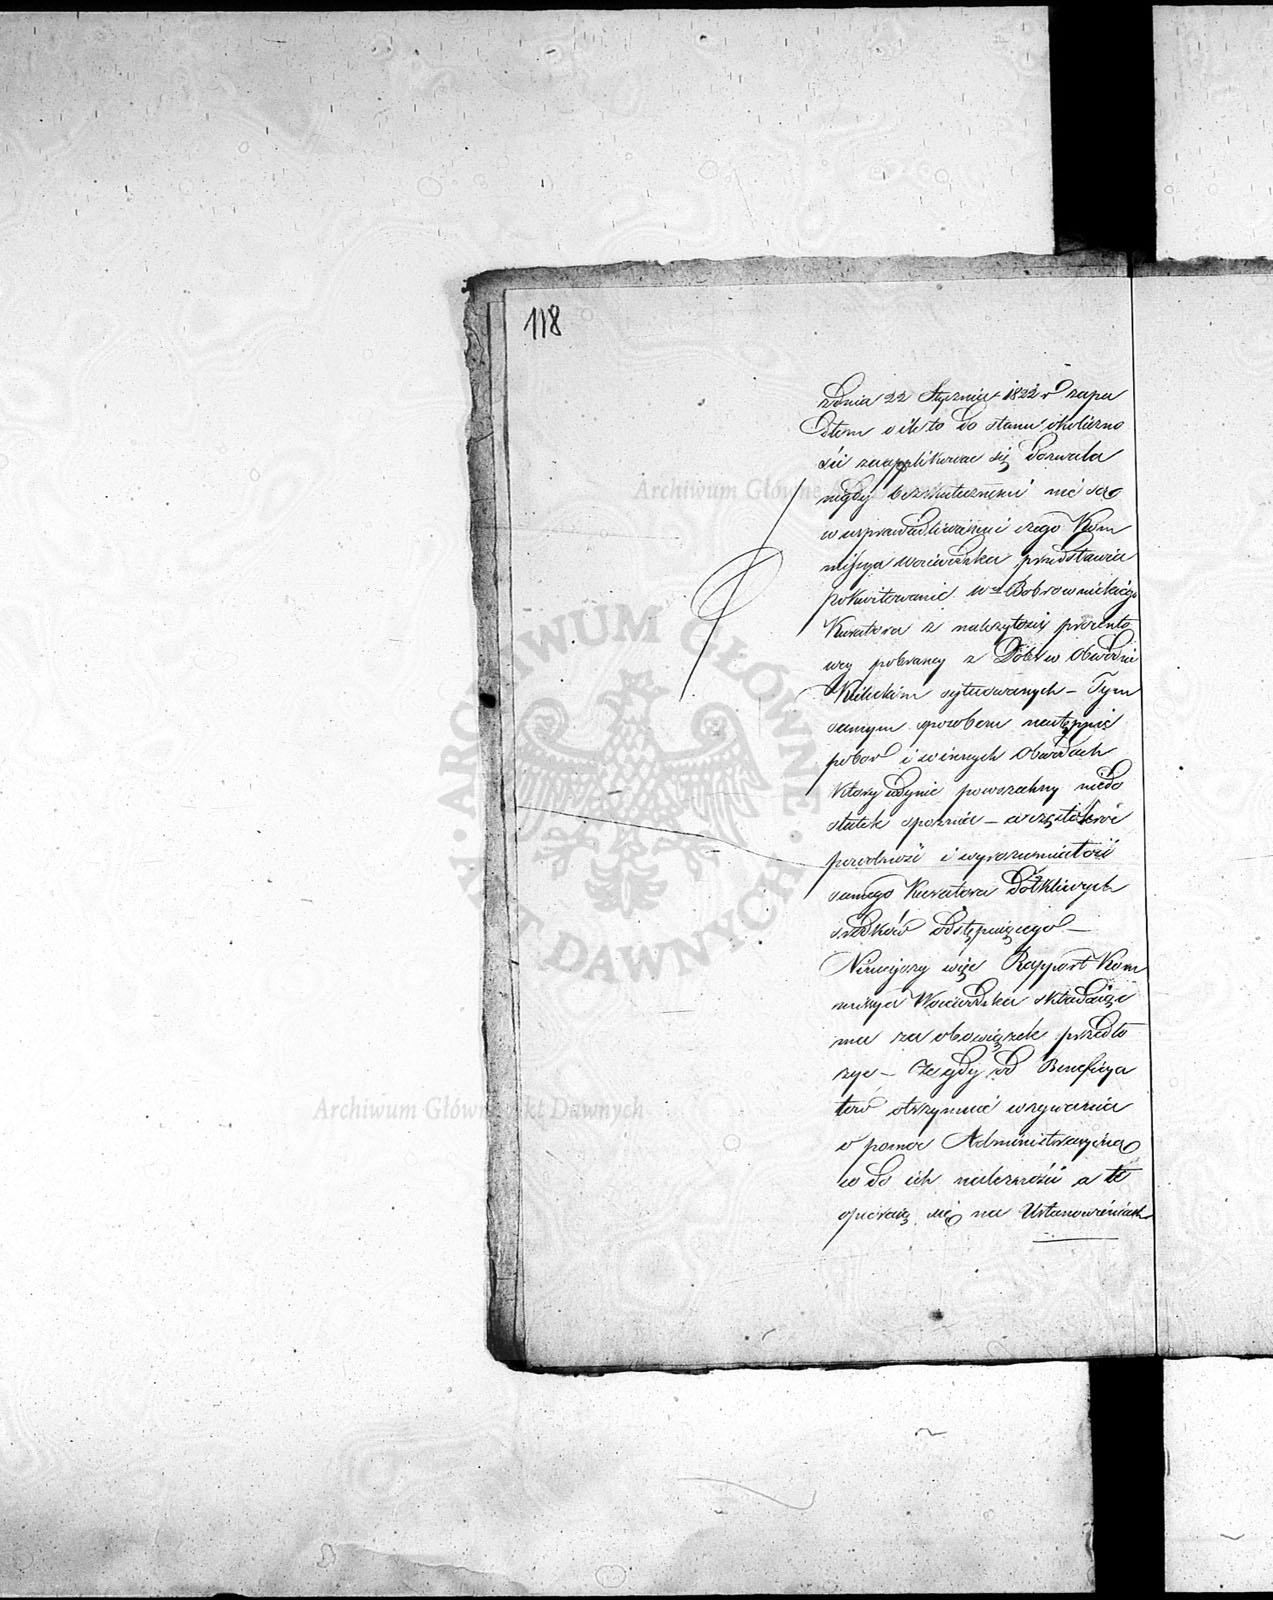 118
z dnia 22 Stycznia 1822 r zapa
dłem o ile to do stanu okoliczno
ści zaapplikować się dozwala
nigdy bezskutecznemi nie są
w usprawiedliwieniu czego Kom
missya Woiewódzka przedstawia
pokwitowanie Wgo Bobrownickiego
Kuratora z należytości procento
wey pobraney z Dóbr w Obwodzie
Kieleckim sytuowanych – Tym
samym sposobem nastąpił
pobór i w innych Obwodach
który iedynie powszechny niedo
statek spoznia – a częstokroć
powolność i wyrozumiałość
samego Kuratora dotkliwych
srodków odstępuiącego –
Ninieyszy więc Rapport Kom
missya Woiewódzka składaiąc
ma za obowiązek przedło
żyć – że gdy od Beneficya
tów otrzymuie wezwania
o pomoc Administracyiną
co do ich należności a te
opieraią się na Ustanowieniach
Archiwum Główne Akt Dawnych
ARCHIWUM GŁÓWNE AKT DAWNYCH
Archiwum Główne Akt Dawnych